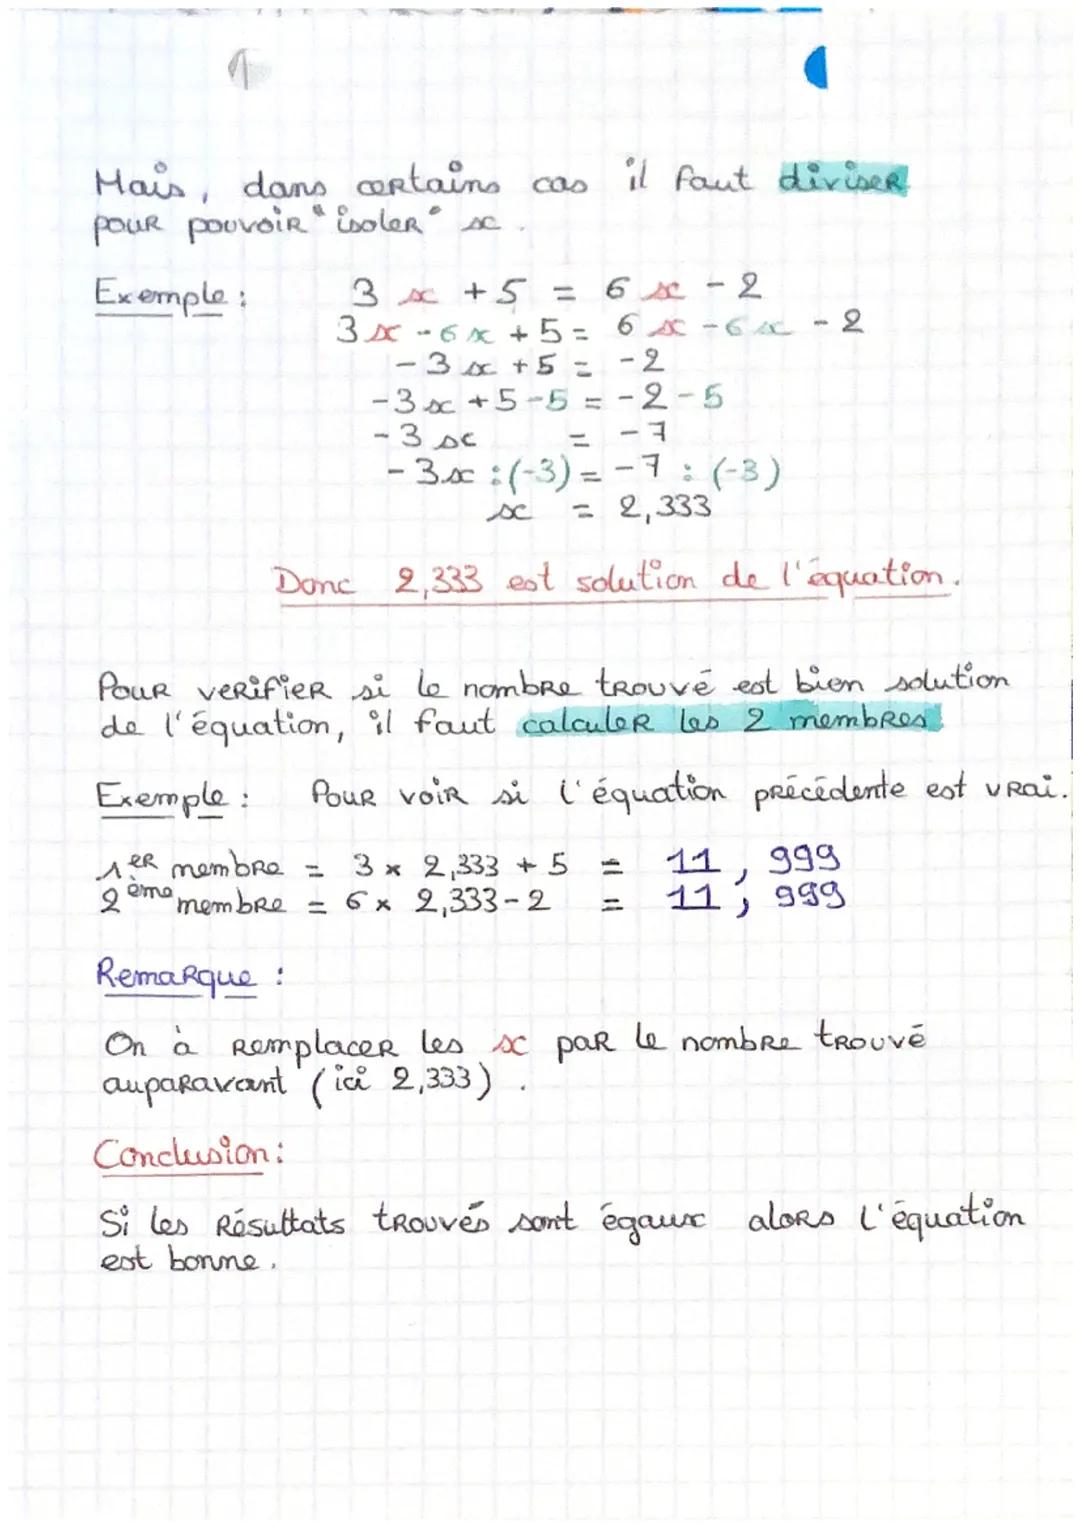 Mais, dans certains cas il faut diviser
pour pouvoir "isoler" x.
Exemple : 3x + 5 = 6x - 2
3x - 6x + 5 = 6x - 6x - 2
- 3x + 5 = - 2
- 3x + 5 - 5 = - 2 - 5
- 3x = - 7
- 3x : (-3) = - 7 : (-3)
x = 2,333
Donc 2,333 est solution de l'équation.
Pour verifier si le nombre trouvé est bien solution
de l'équation, il faut calculer les 2 membres
Exemple : Pour voir si l'équation précédente est vrai.
1er membre = 3 x 2,333 + 5 = 11,999
2ème membre = 6 x 2,333 - 2 = 11,999
Remarque :
On à remplacer les x par le nombre trouvé
auparavant (ici 2,333).
Conclusion :
Si les résultats trouvés sont égaux alors l'équation
est bonne.